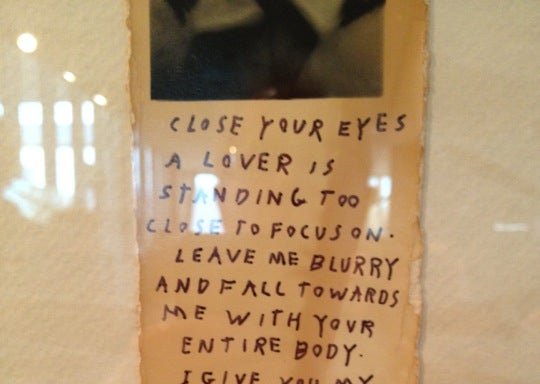 CLOSE YOUR EYES
A LOVER IS
STANDING TOO
CLOSE TO FOCUS ON.
LEAVE ME BLURRY
AND FALL TOWARDS
ME WITH YOUR
ENTIRE BODY.
I GIVE YOU MY